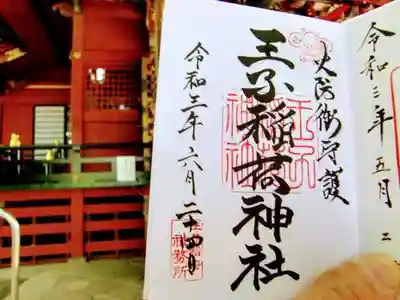 令和三年五月二
火防御守護
王子稲荷神社
令和三年六月二十四日